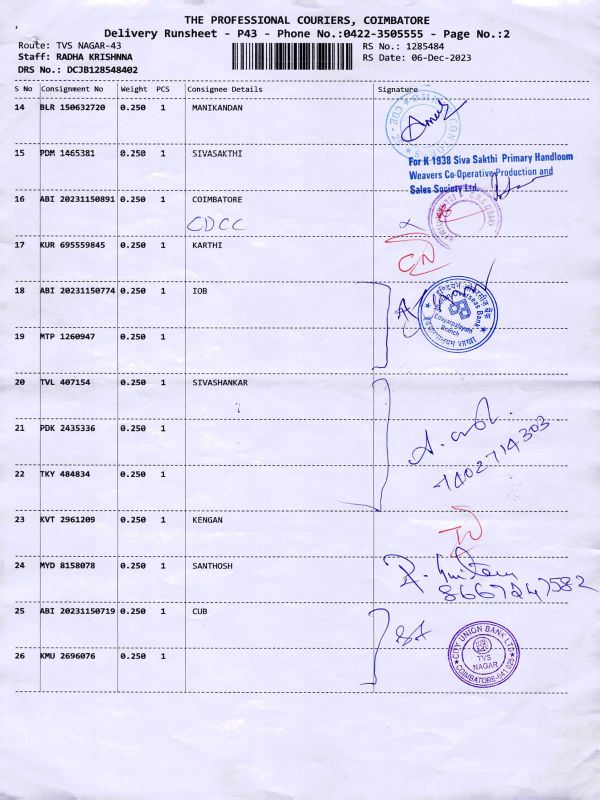 THE PROFESSIONAL COURIERS, COIMBATORE
Delivery Runsheet - P43 - Phone No.:0422-3505555 - Page No.:2
Route: TVS NAGAR-43 RS No.: 1285484
Staff: RADHA KRISHNNA RS Date: 06-Dec-2023
DRS No.: DCJB128548402
S No Consignment No Weight PCS Consignee Details Signature
14 BLR 150632720 0.250 1 MANIKANDAN
15 PDM 1465381 0.250 1 SIVASAKTHI
For K 1938 Siva Sakthi Primary Handloom
Weavers Co-Operative Production and
Sales Society Ltd
16 ABI 20231150891 0.250 1 COIMBATORE
CDCC
17 KUR 695559845 0.250 1 KARTHI
18 ABI 20231150774 0.250 1 IOB
Overseas Bank
Edayarpalayam
Branch
19 MTP 1260947 0.250 1
20 TVL 407154 0.250 1 SIVASHANKAR
21 PDK 2435336 0.250 1
7402714303
22 TKY 484834 0.250 1
23 KVT 2961209 0.250 1 KENGAN
24 MYD 8158078 0.250 1 SANTHOSH
8667247582
25 ABI 20231150719 0.250 1 CUB
CITY UNION BANK LTD
TVS
NAGAR
COIMBATORE-641 025
26 KMU 2696076 0.250 1